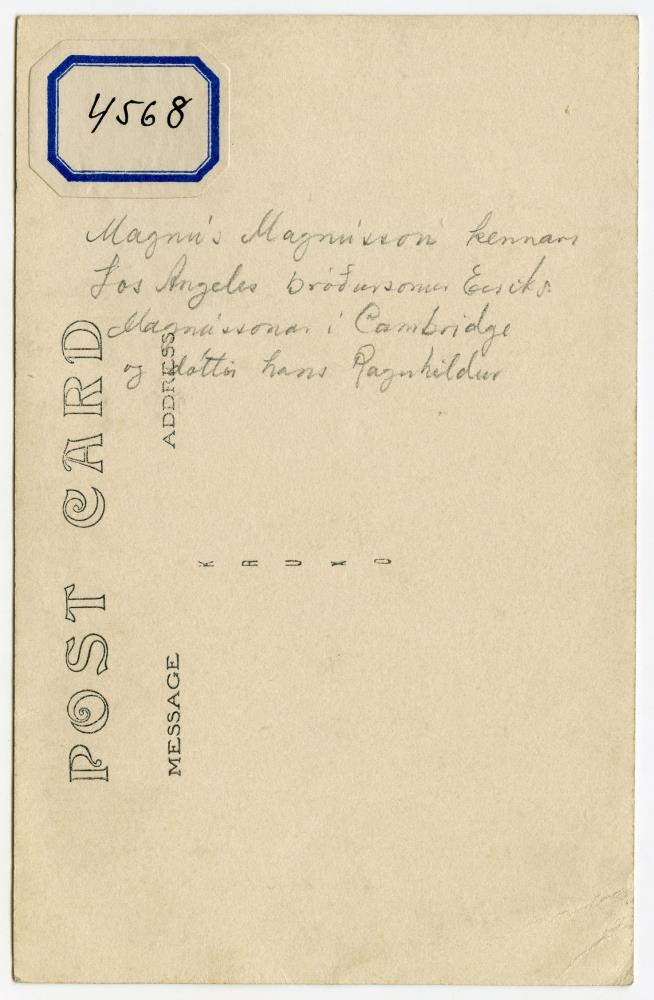 4568
Magnús Magnússon kennari
Los Angeles bróðursonur Eiríks
Magnússonar í Cambridge
og dóttir hans Ragnhildur
POST CARD
ADDRESS
KRUXO
MESSAGE